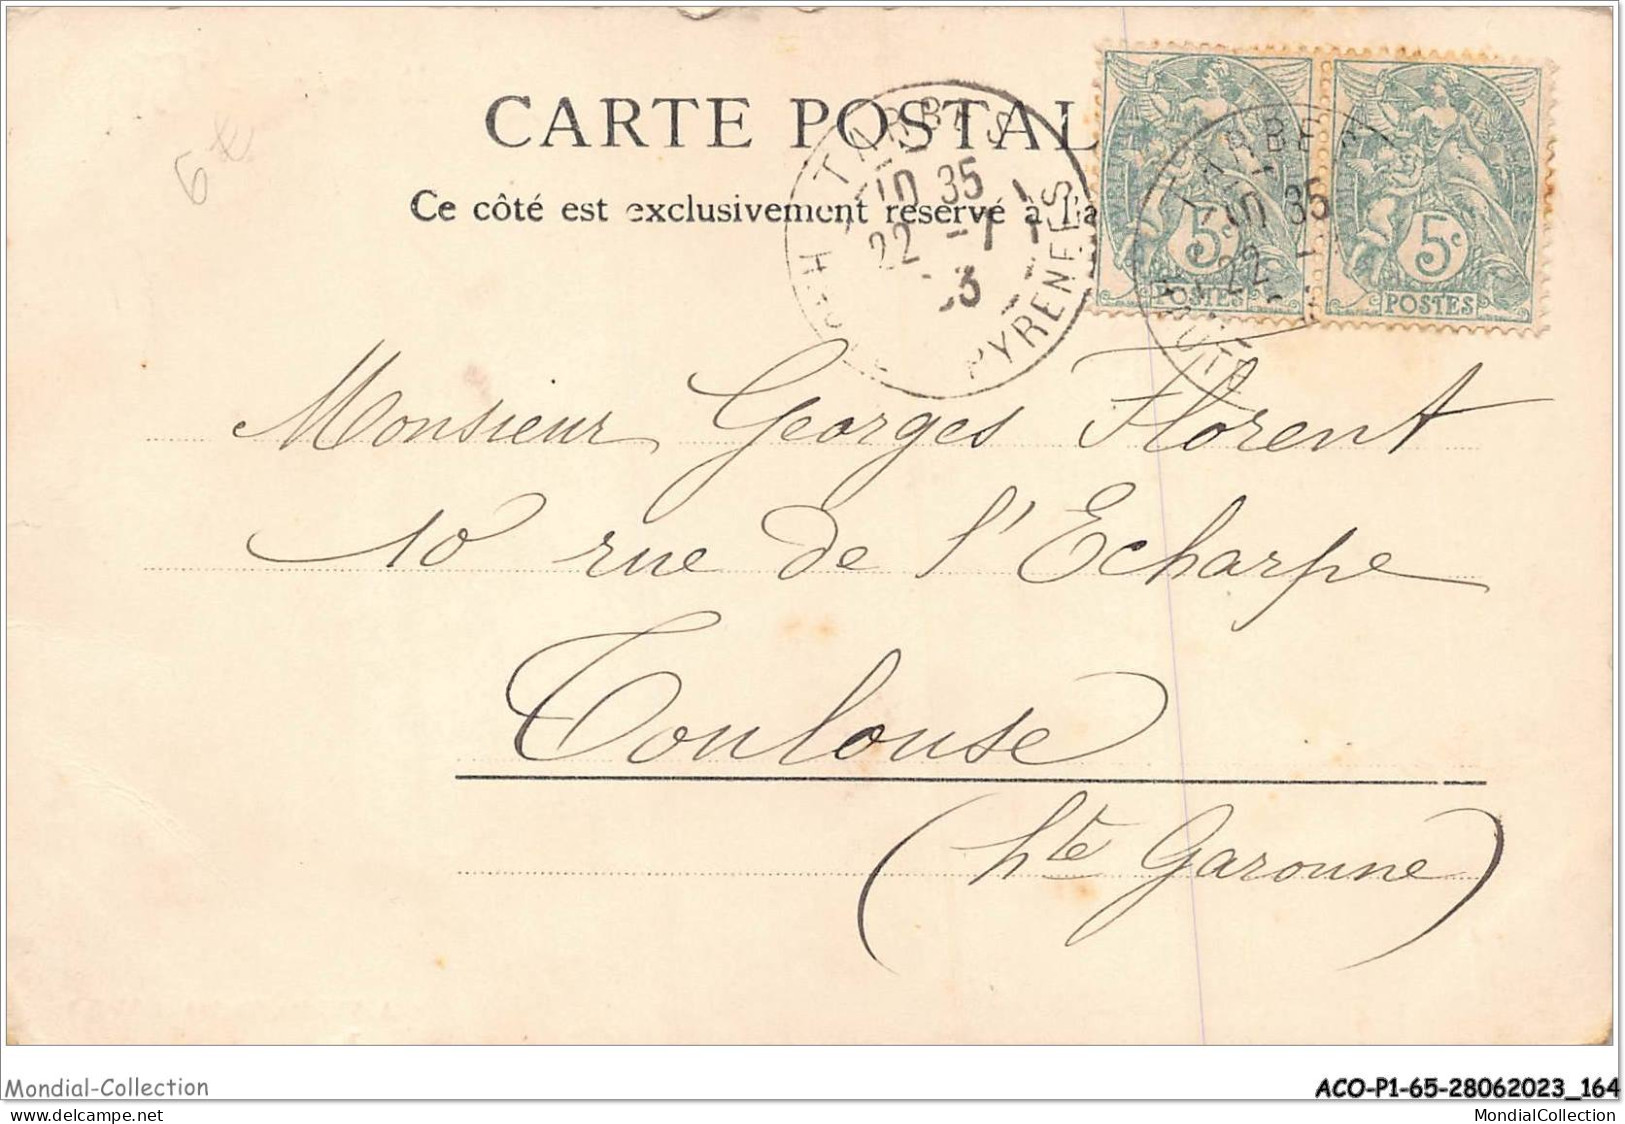 6€
CARTE POSTAL
Ce côté est exclusivement réservé à l'a
TARBES
10 35
22 -1
3
HTES PYRENEES
TARBES
10 35
22
5c
POSTES
5c
POSTES
Monsieur Georges Florent
10 rue de l'Echarpe
Toulouse
(hte Garonne)
Mondial-Collection
ACO-P1-65-28062023_164
MondialCollection